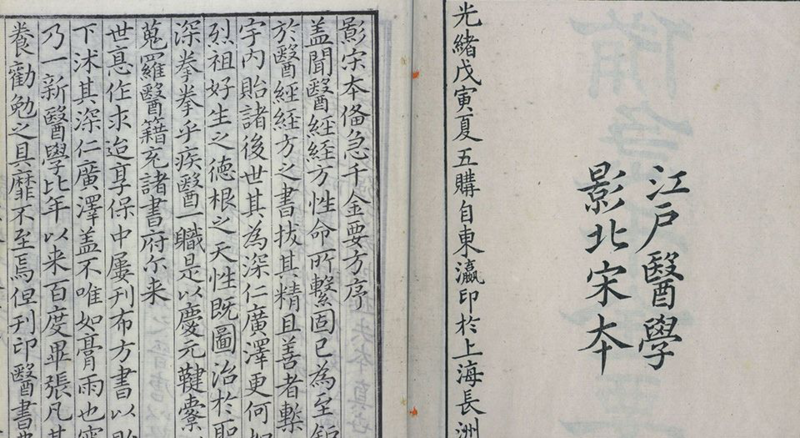 江戶醫學
影北宋本
光緒戊寅夏五購自東瀛印於上海長洲
影宋本俻急千金要方序
盖聞醫經經方性命所繫固已為至鉅
於醫經經方之書拔其精且善者槧
宇内貽諸後世其為深仁廣澤更何如
烈祖好生之徳根之天性既圖治於聖
深拳拳乎疾醫一職是以慶元鞬櫜
蒐羅醫籍充諸書府尓来
世憙作求迨享保中屢刊布方書以貽
下沭其深仁廣澤盖不唯如膏雨也
乃一新醫學比年以来百度畢張凡其
養勸勉之具靡不至焉但刊印醫書